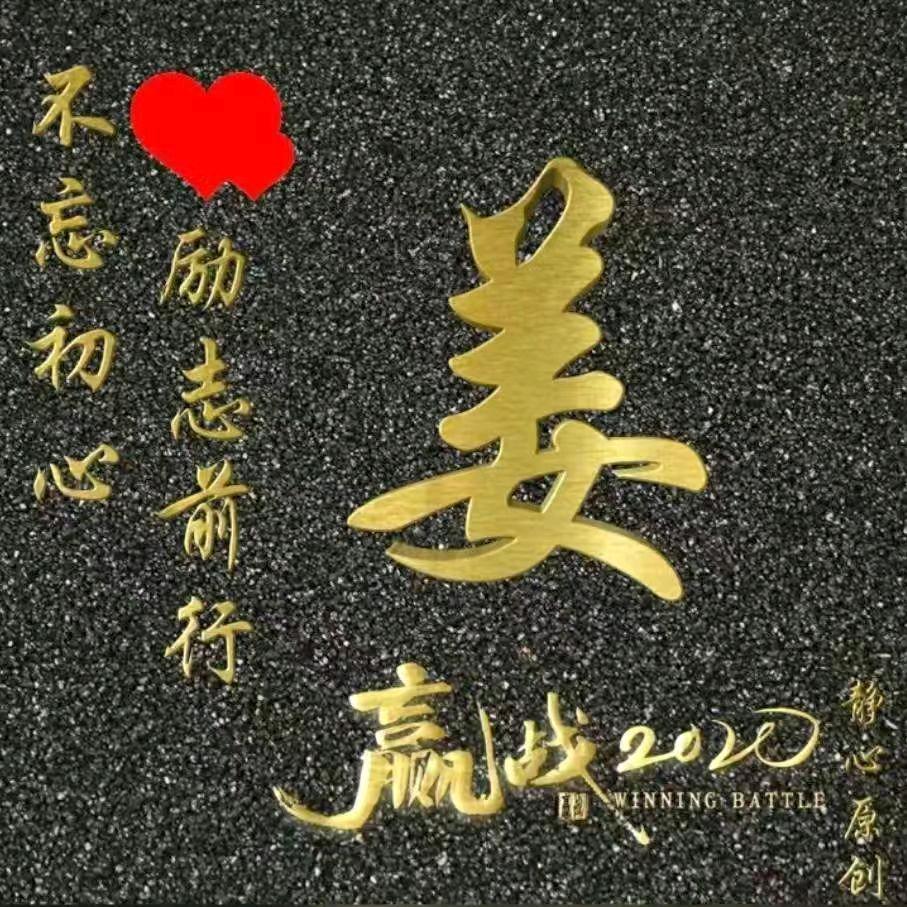 不忘初心
励志前行
姜
赢战2020
WINNING BATTLE
静心原创